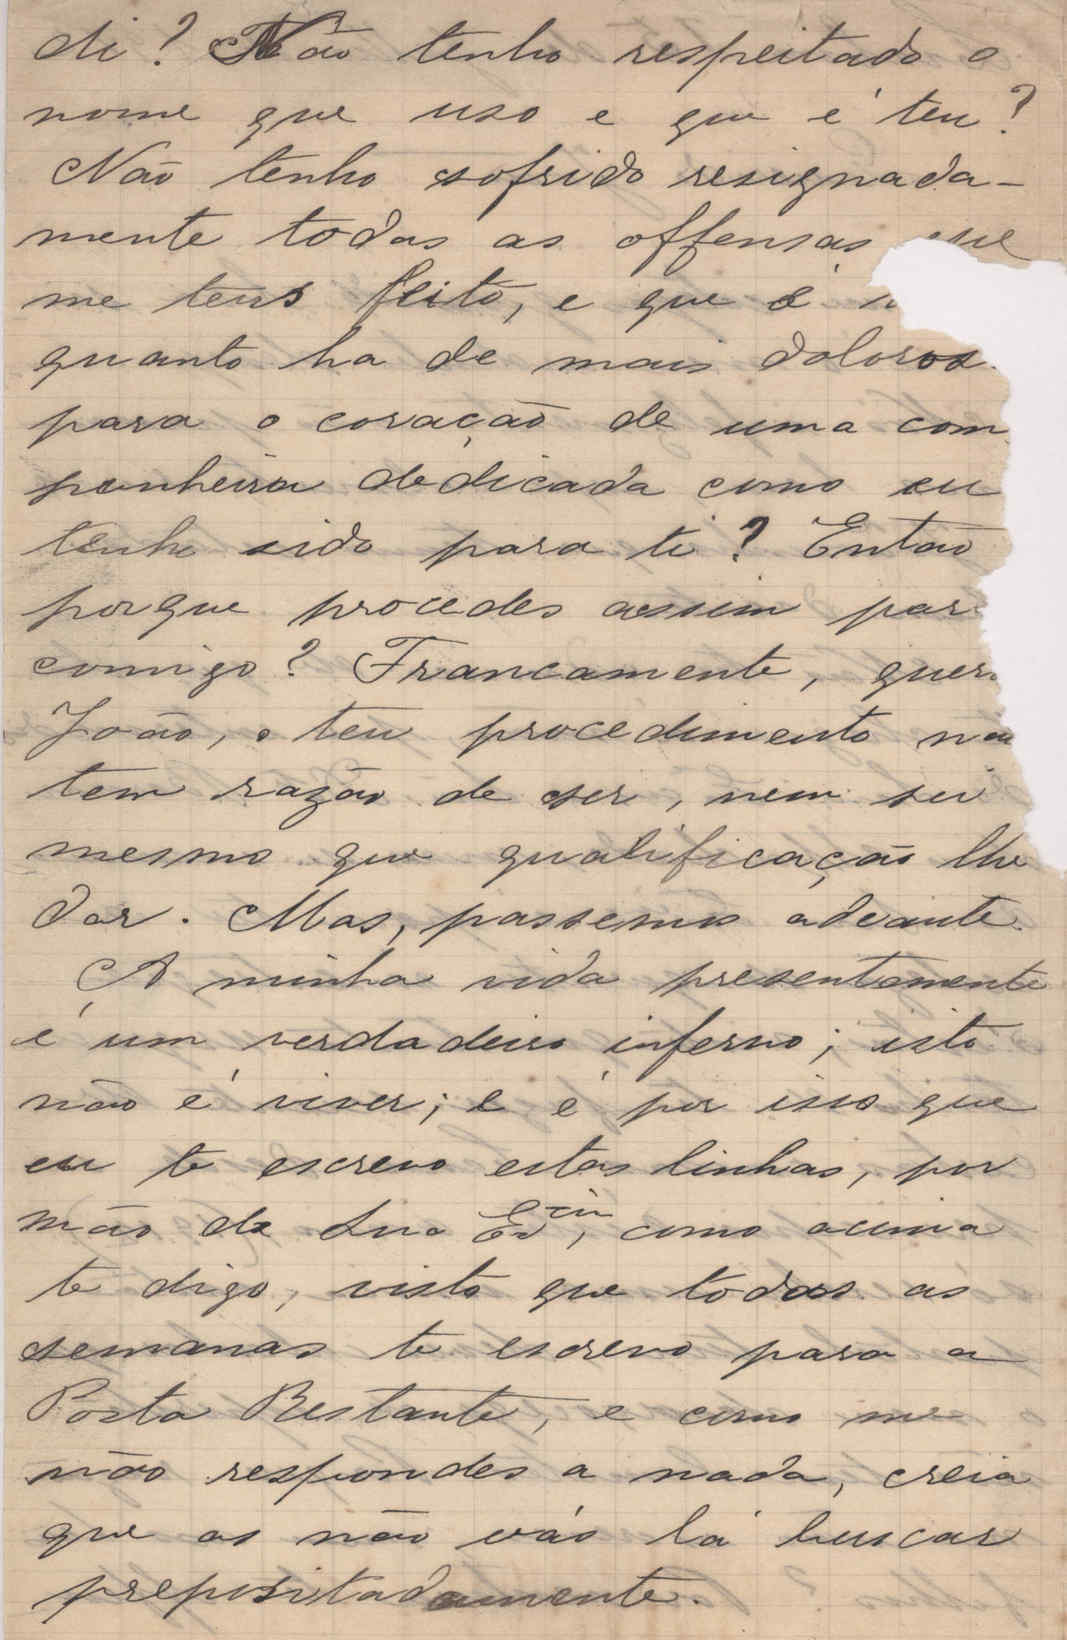 di? Não tenho respeitado o
nome que uso e que é teu?
Não tenho sofrido resignada-
mente todas as offensas que
me tens feito, e que é
quanto ha de mais doloros
para o coração de uma com
panheira dedicada como eu
tenho sido para ti? Então
porque procedes assim par
comigo? Francamente, quer
João, o teu procedimento não
tem razão de ser, nem sei
mesmo que qualificação lhe
dar. Mas, passemos adeante.
A minha vida presentemente
é um verdadeiro inferno; isto
não é viver; e é por isso que
eu te escrevo estas linhas, por
mão de Sua Ex.cia, como acima
te digo, visto que todas as
semanas te escrevo para a
Posta Restante, e como me
não respondes a nada, creia
que as não vás lá buscar
prepositadamente.